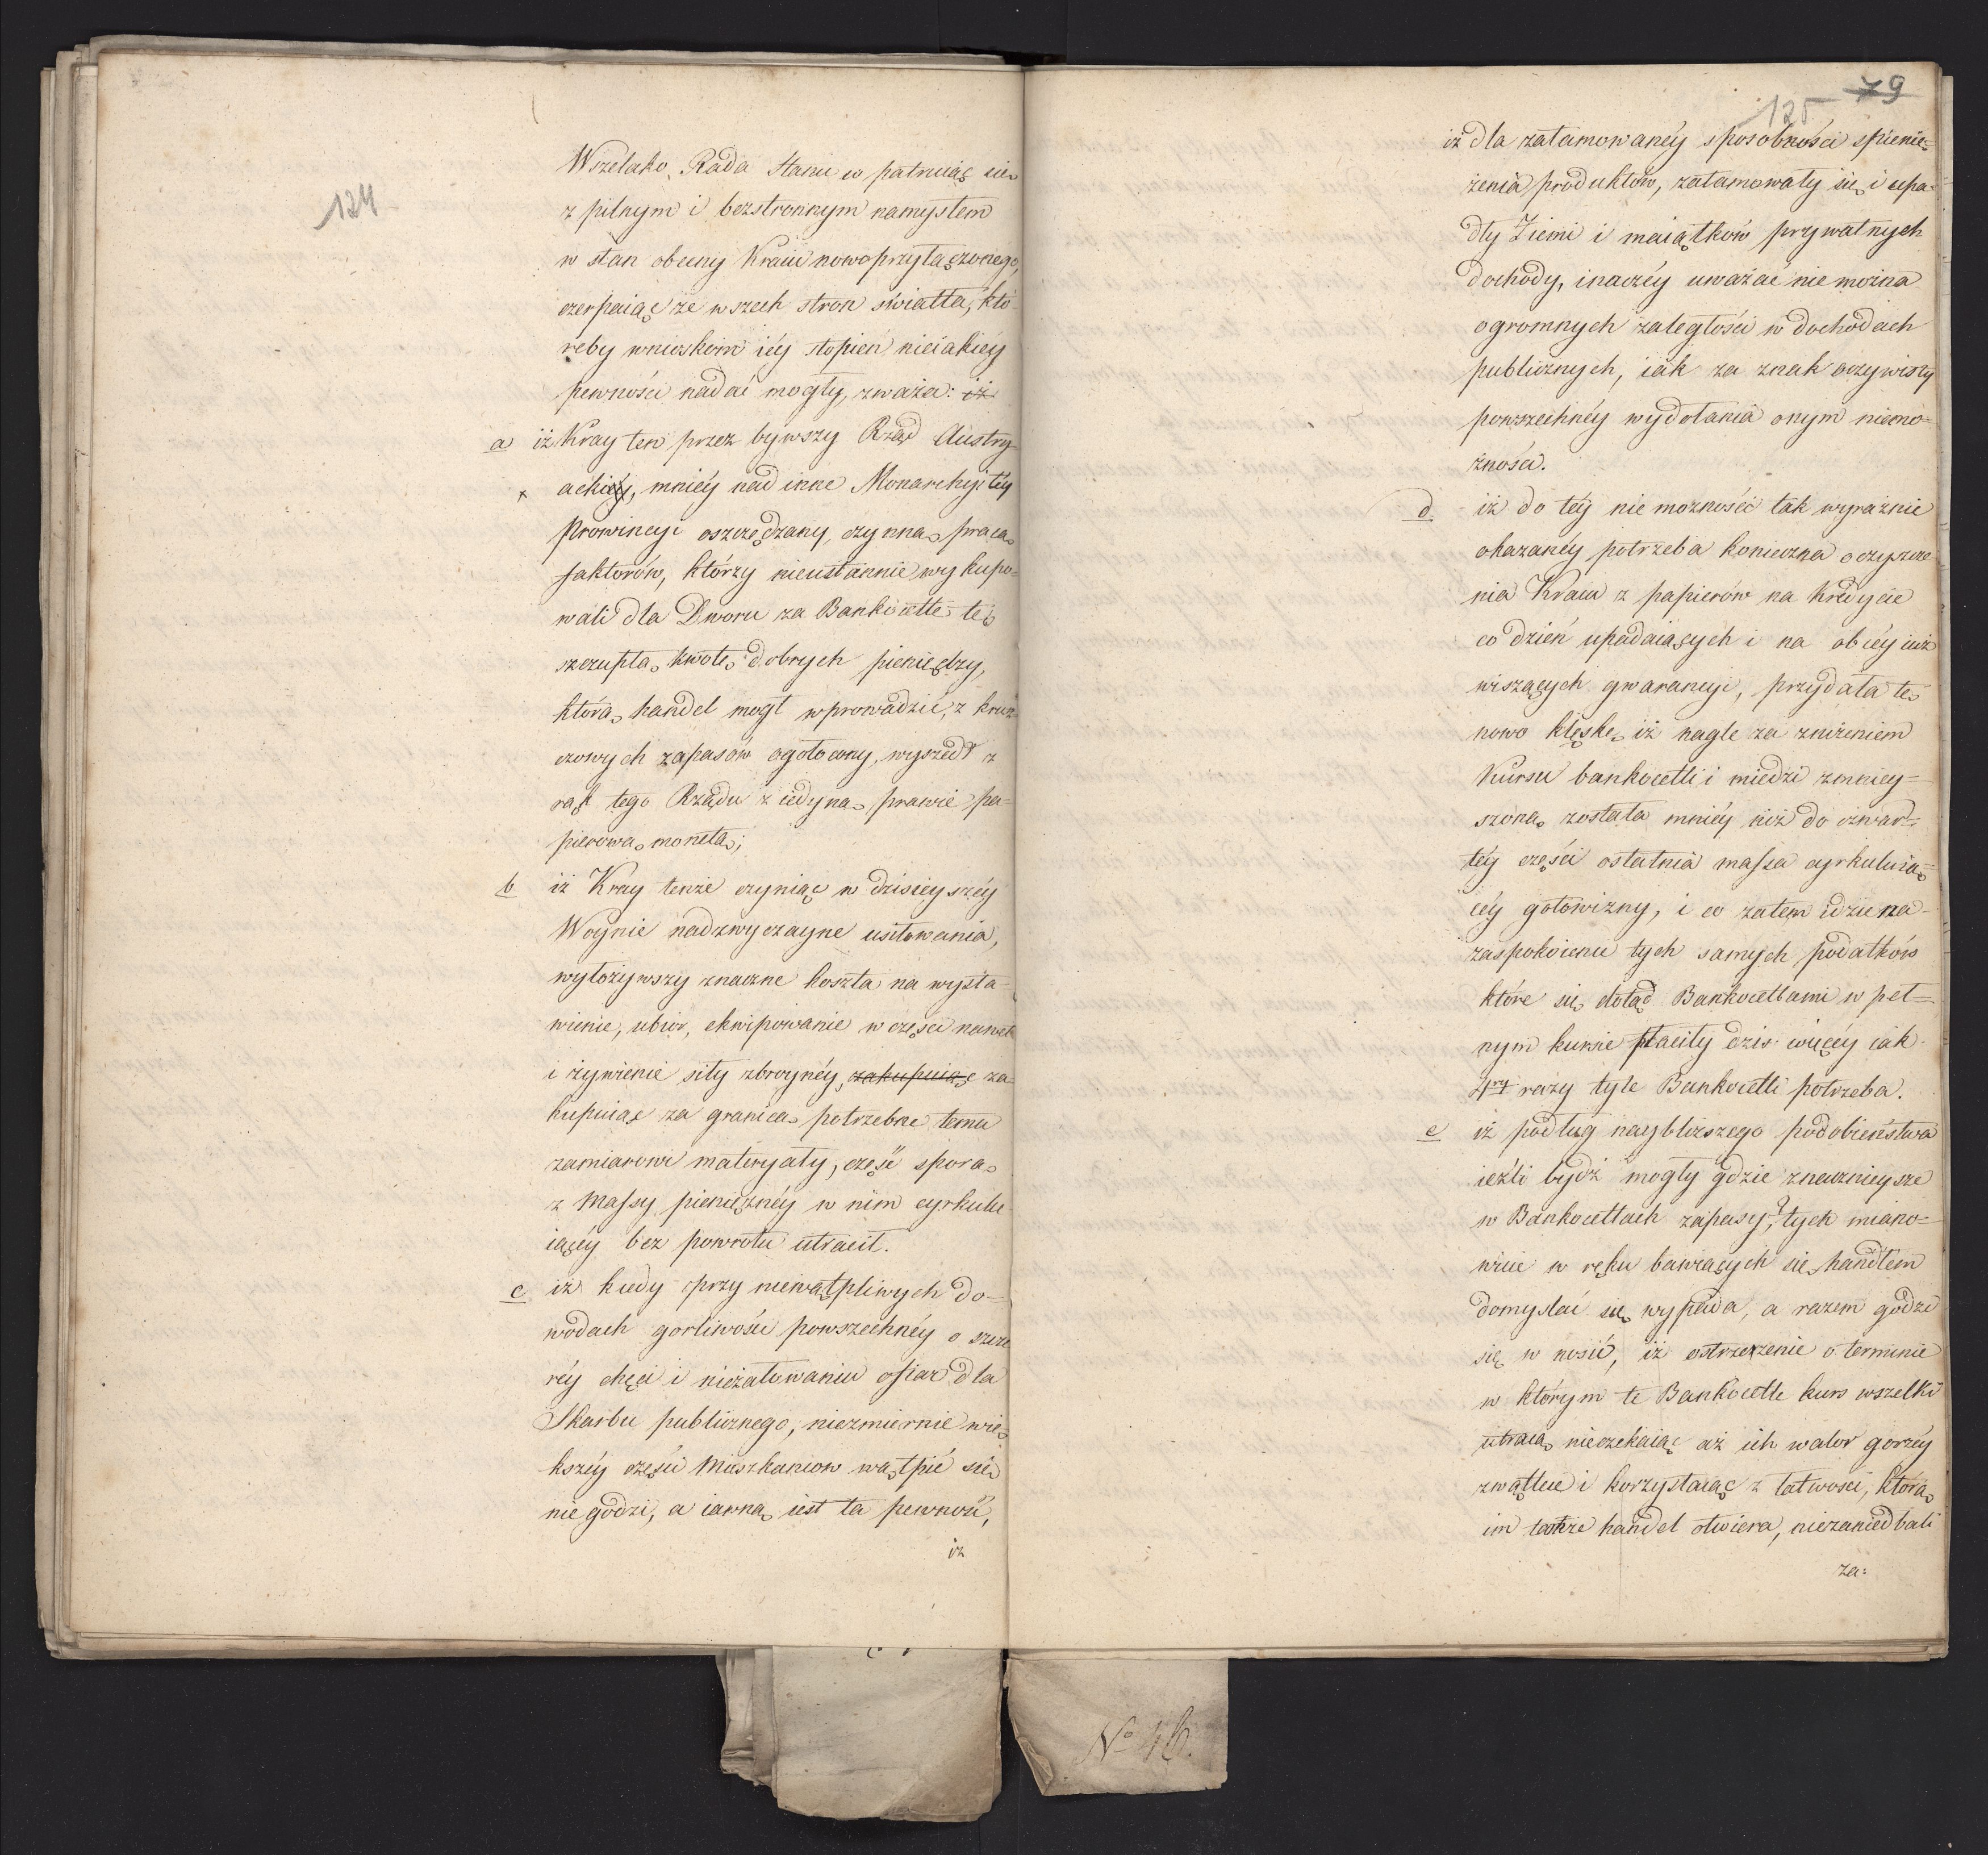 124
Wszelako Rada Stanu w patruiąc się
z pilnym i bezstronnym namysłem
w stan obecny Kraiu nowoprzyłączonego,
czerpaiąc ze wszech stron światła, któ-
reby wnioskom iéy stopień nieiakiéy
pewności nadać mogły, zważa: iż
a iż Kray ten przez bywszy Rząd Austry-
ackiéy, mniéy nad inne Monarchyi téy
Prowincyi oszczędzany, czynną pracą
faktorów, którzy nieustannie wykupo=
wali dla Dworu za Bankocetle tę
szczupłą kwotę dobrych pieniędzy,
którą handel mogł wprowadzić, z krusz-
czowych zapasów ogołocony, wyszedł z
rąk tego Rządu z iedyną prawie pa=
pierową monetą;
b iż Kray tenże czyniąc w dzisieyszéy
Woynie nadzwyczayne usiłowania,
wyłożywszy znaczne koszta na wysta-
wienie, ubiór, ekwipowanie w części nawet
i żywienie siły zbroynéy, zakupuiąc za-
kupuiąc za granicą potrzebne temu
zamiarowi materyały, część sporą
z Massy pieniężnéy w nim cyrkulu-
iącey bez powrotu utracił.
c iż kiedy przy niewątpliwych do=
wodach gorliwości powszechnéy o szcze
réy chęci i nieżałowaniu ofiar dla
Skarbu publicznego, niezmiernie wię-
kszéy części Mieszkancow wątpić się
nie godzi, a iawną iest ta pewność,
iż
79
125
iż dla zatamowanéy sposobności spienię=
żenia produktów, zatamowały się i upa=
dły Ziemi i maiątków prywatnych
dochody, inaczéy uważać nie można
ogromnych zaległości w dochodach
publicznych, iak za znak oczywisty
powszechnéy wydołania onym niemo=
żności.
d. iż do téy nie możności tak wyraźnie
okazanéy potrzeba konieczna oczyszcze
nia Kraiu z papierów na Kredycie
co dzień upadaiących i na obcéy iuż
wiszących gwarancyi, przydała tę
nowo klęskę iż nagle za zniżeniem
Kursu bankocetli i miedzi zmniey=
szoną została mniéy niż do czwar=
téy części ostatnia massa cyrkuluią=
céy gotowizny, i co zatem idzie na-
zaspokoienie tych samych podatków
które się dotąd Bankocetlami w peł=
nym kursie płaciły dziś więcéy iak
4ry razy tyle Bankocetli potrzeba.
e iż podług naybliższego podobieństwa
ieżli bydź mogły gdzie znacznieysze
w Bankocetlach zapasy, tych miano=
wicie w ręku bawiących się handlem
domyślać się wypada, a razem godzi
się w nosić, iż ostrzeżenie o terminie
w którym te Bankocetle kurs wszelki
utracą nieczekaiąc aż ich walor gorzéy
zwątleie i korzystaiąc z łatwości, którą
im tenże handel otwiera, niezaniedbali
za=
No 46.